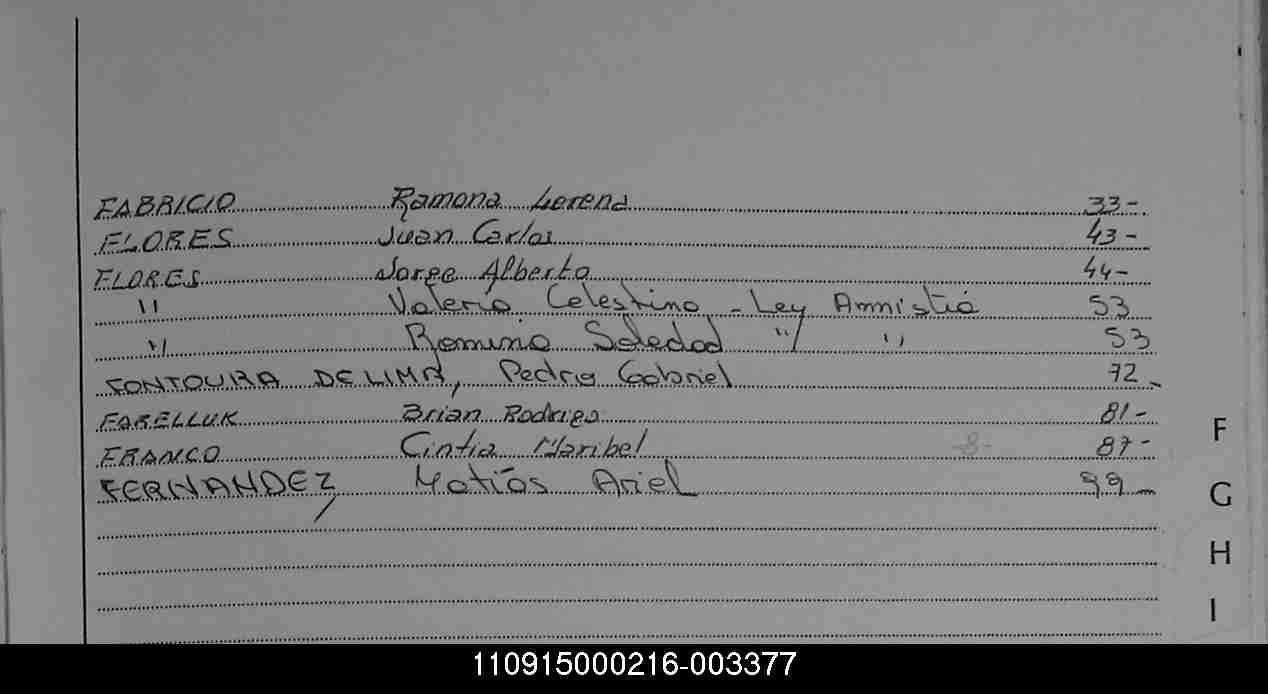 FABRICIO Ramona Lorena 33-
FLORES Juan Carlos 43-
FLORES Jorge Alberto 44-
" Valeria Celestina - Ley Amnistia 53
" Romina Soledad " " 53
FONTOURA DE LIMA, Pedro Gabriel 72-
FARELLUK Brian Rodrigo 81-
FRANCO Cintia Maribel -8- 87-
FERNANDEZ, Matías Ariel 99-
F
G
H
I
110915000216-003377